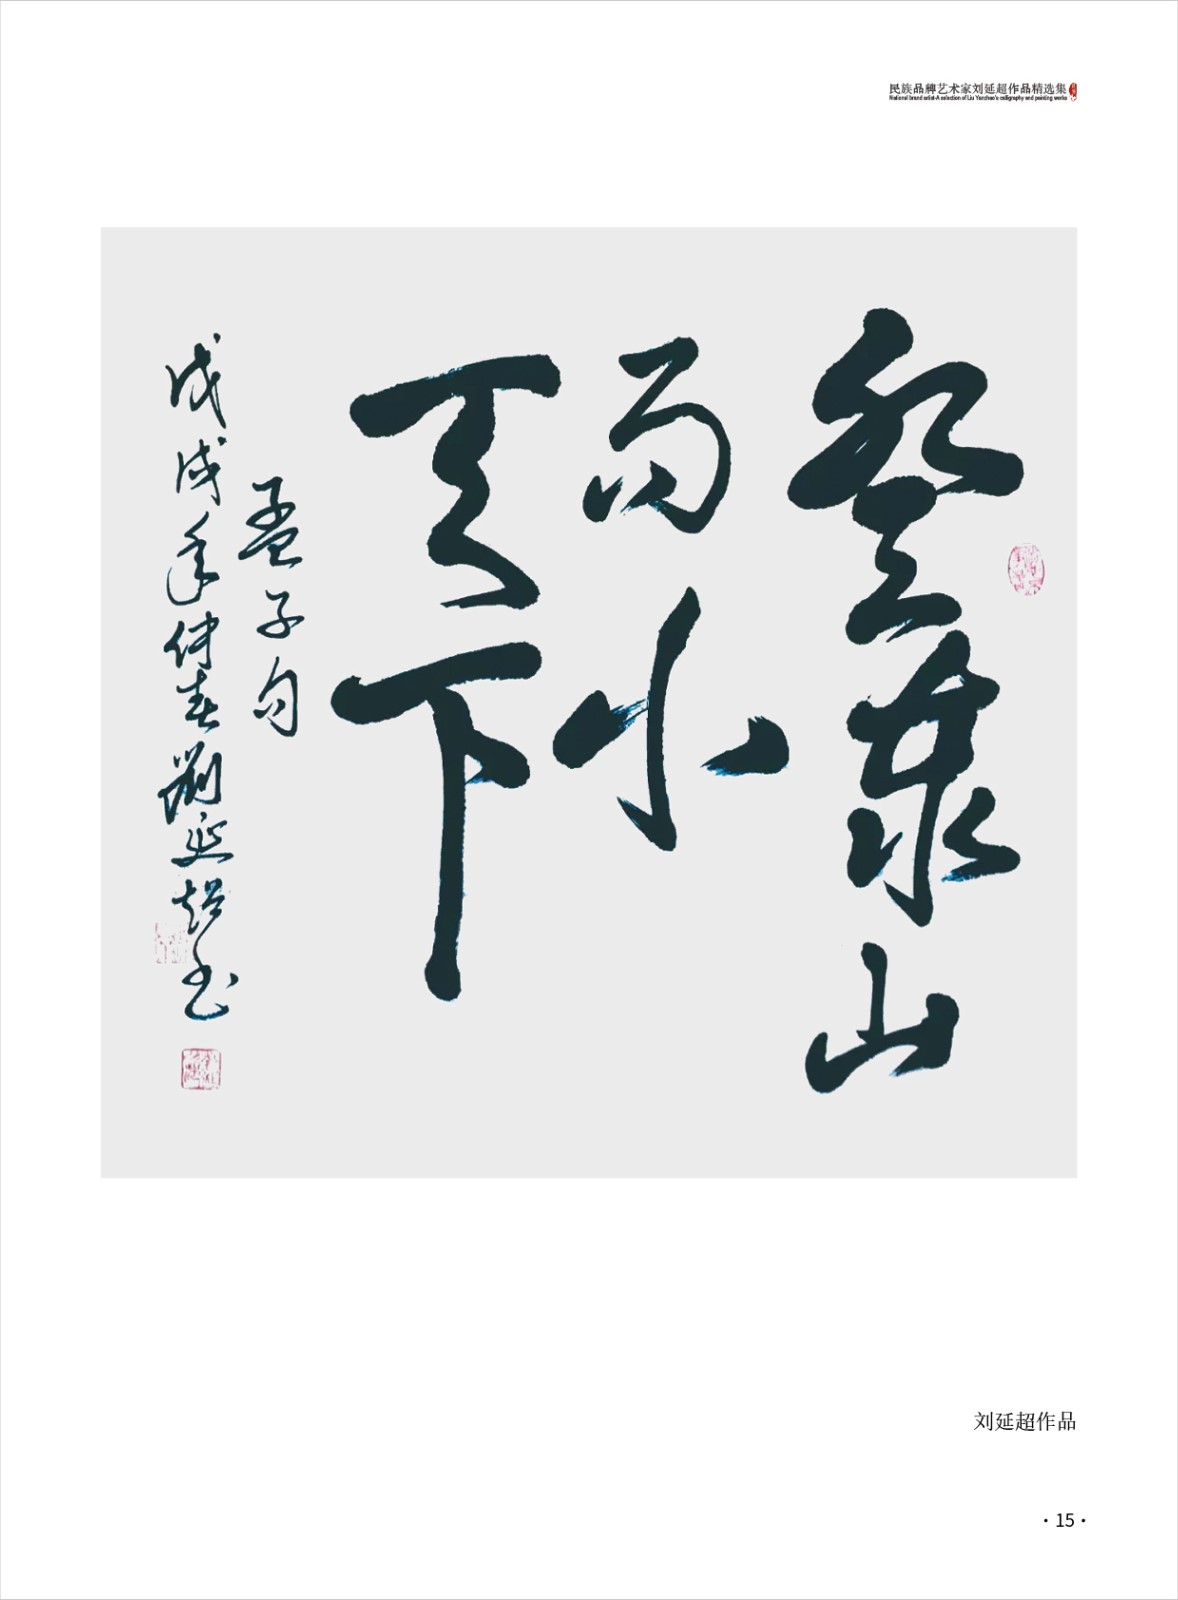 民族品牌艺术家刘延超作品精选集
National brand artist-A selection of Liu Yanchao's calligraphy and painting works
登泰山
而小
天下
孟子句
戊戌年仲春劉延超书
刘延超作品
·15·